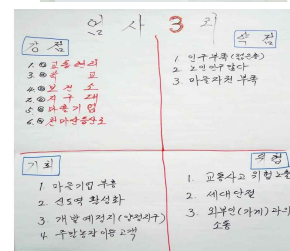 연 사 3 리
강 점
1. ㉿ 교통편리
2. 학 교
4. 보 건 소
5. 마을기업
6. 천마산등산로
약 점
1. 인구부족(젊은층)
2. 노인인구많다
3. 마을자원 부족
기 회
1. 마을기업 부흥
2. 신도역 활성화
3. 개발예정지(양정지구)
4. 주말농장이용고객
위 협
1. 교통사고 위험노출
2. 세대단절
3. 외부인(가게)과의
소통